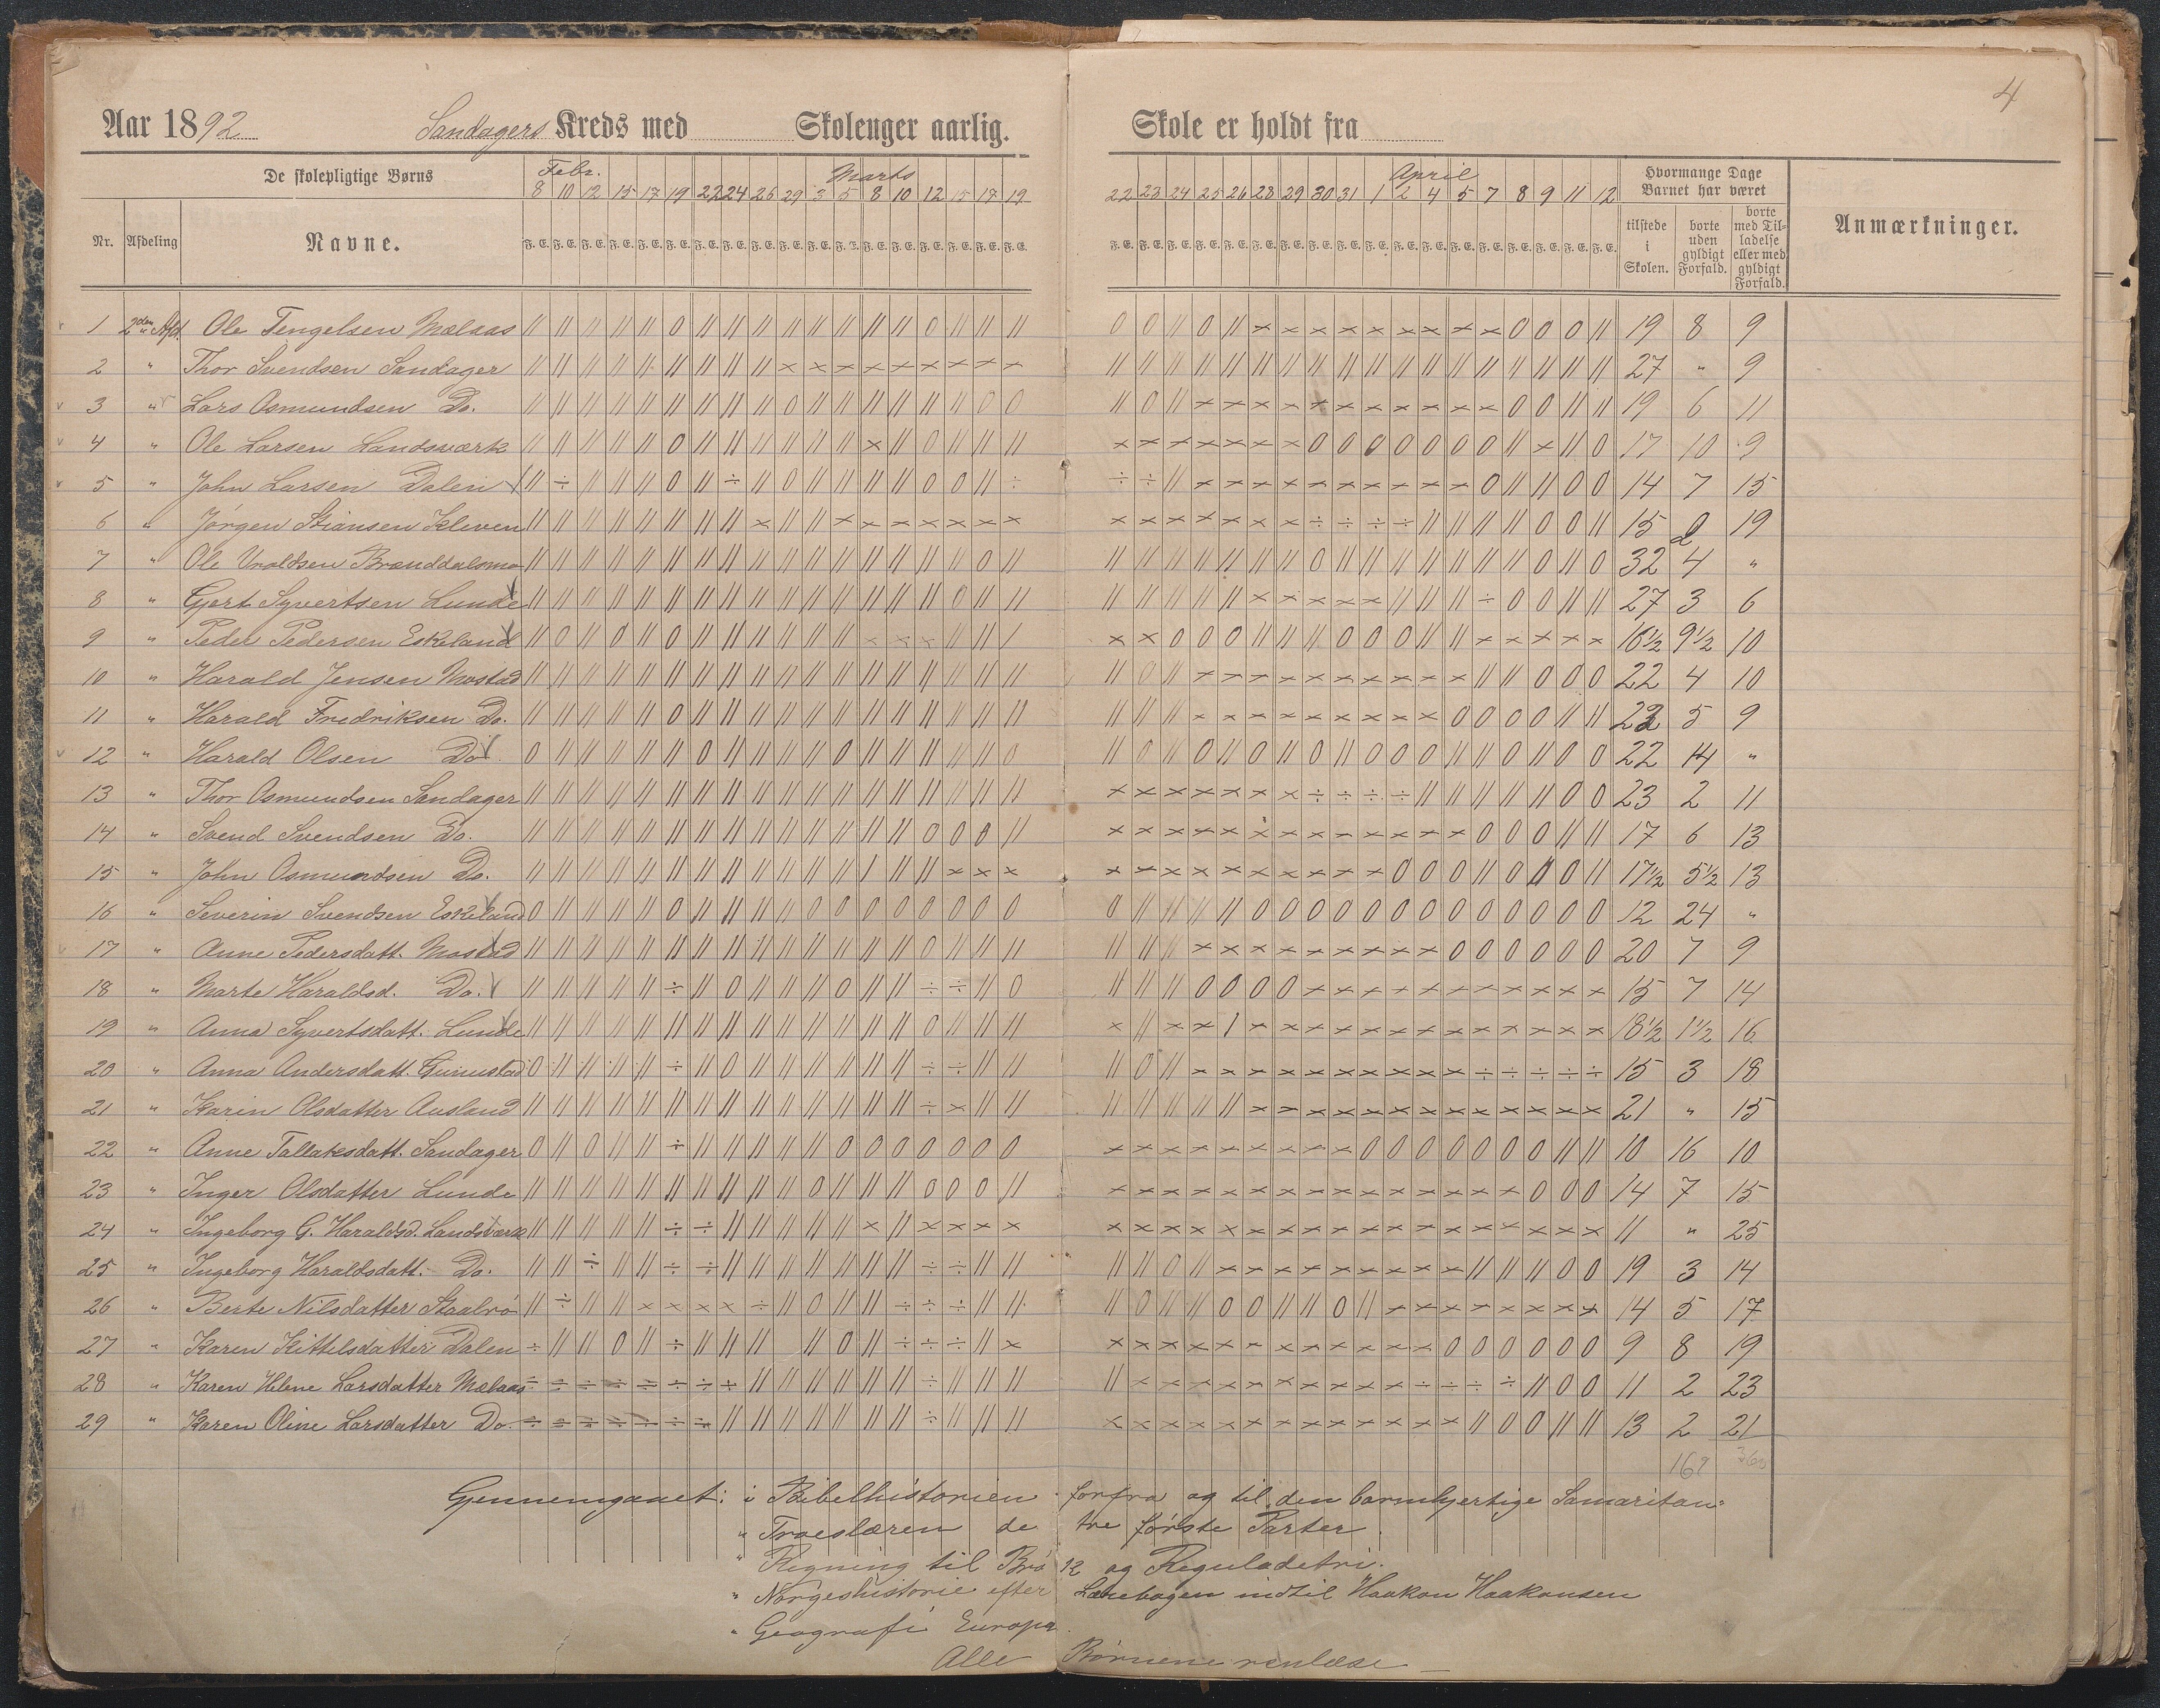 4
Aar 1892 Sandagers Kreds med Skolenger aarlig. Skole er holdt fra
De skolepligtige Børns Febr. Marts April Hvormange Dage Barnet har været
8 10 12 15 17 19 22 24 26 29 3 5 8 10 12 15 17 19 22 23 24 25 26 28 29 30 31 1 2 4 5 7 8 9 11 12
Nr. Afdeling Navne. F. E. F. E. F. E. F. E. F. E. F. E. F. E. F. E. F. E. F. E. F. E. F. E. F. E. F. E. F. E. F. E. F. E. F. E. F. E. F. E. F. E. F. E. F. E. F. E. F. E. F. E. F. E. F. E. F. E. F. E. F. E. F. E. F. E. F. E. F. E. F. E. tilstede i Skolen. borte uden gyldigt Forfald. borte med Tilladelse eller med gyldigt Forfald. Anmærkninger.
1 2den Afd. Ole Tengelsen Mølaas 19 8 9
2 " Thor Svendsen Sandager 27 " 9
3 " Lars Osmundsen Do. 19 6 11
4 " Ole Larsen Landsværk 17 10 9
5 " John Larsen Dalen 14 7 15
6 " Jørgen Stiansen Kleven 15 2 19
7 " Ole Vraldsen Brænddalsmo 32 4 "
8 " Gjert Syvertsen Lunde 27 3 6
9 " Peder Pedersen Eskeland 16 1/2 9 1/2 10
10 " Harald Jensen Mostad 22 4 10
11 " Harald Fredriksen Do. 22 5 9
12 " Harald Olsen Do. 22 14 "
13 " Thor Osmundsen Sandager 23 2 11
14 " Svend Svendsen Do. 17 6 13
15 " John Osmundsen Do. 17 1/2 5 1/2 13
16 " Severin Svendsen Eskeland 12 24 "
17 " Anne Pedersdatt. Mostad 20 7 9
18 " Marte Haraldsd. Do. 15 7 14
19 " Anna Syvertsdatt. Lunde 18 1/2 1 1/2 16
20 " Anna Andersdatt. 15 3 18
21 " Karin Olsdatter Ausland 21 " 15
22 " Anne Tallaksdatt. Sandager 10 16 10
23 " Inger Olsdatter Lunde 14 7 15
24 " Ingeborg G. Haraldsd. Landsværk 11 " 25
25 " Ingeborg Haraldsdatt. Do. 19 3 14
26 " Berte Nilsdatter Staalrø 14 5 17
27 " Karen Kittelsdatter Dalen 9 8 19
28 " Karen Helene Larsdatter Mølaas 11 2 23
29 " Karen Oline Larsdatter Do. 13 2 21
Gjennemgaaet: i Bibelhistorien forfra og til den barmhjertige Samaritan:
" Troeslæren de tre første Parter.
" Regning til Brøk og Reguladetri.
" Norgeshistorie efter Læsebogen indtil Haakon Haakonsen
" Geografi Europa.
Alle Børnene renlæse —